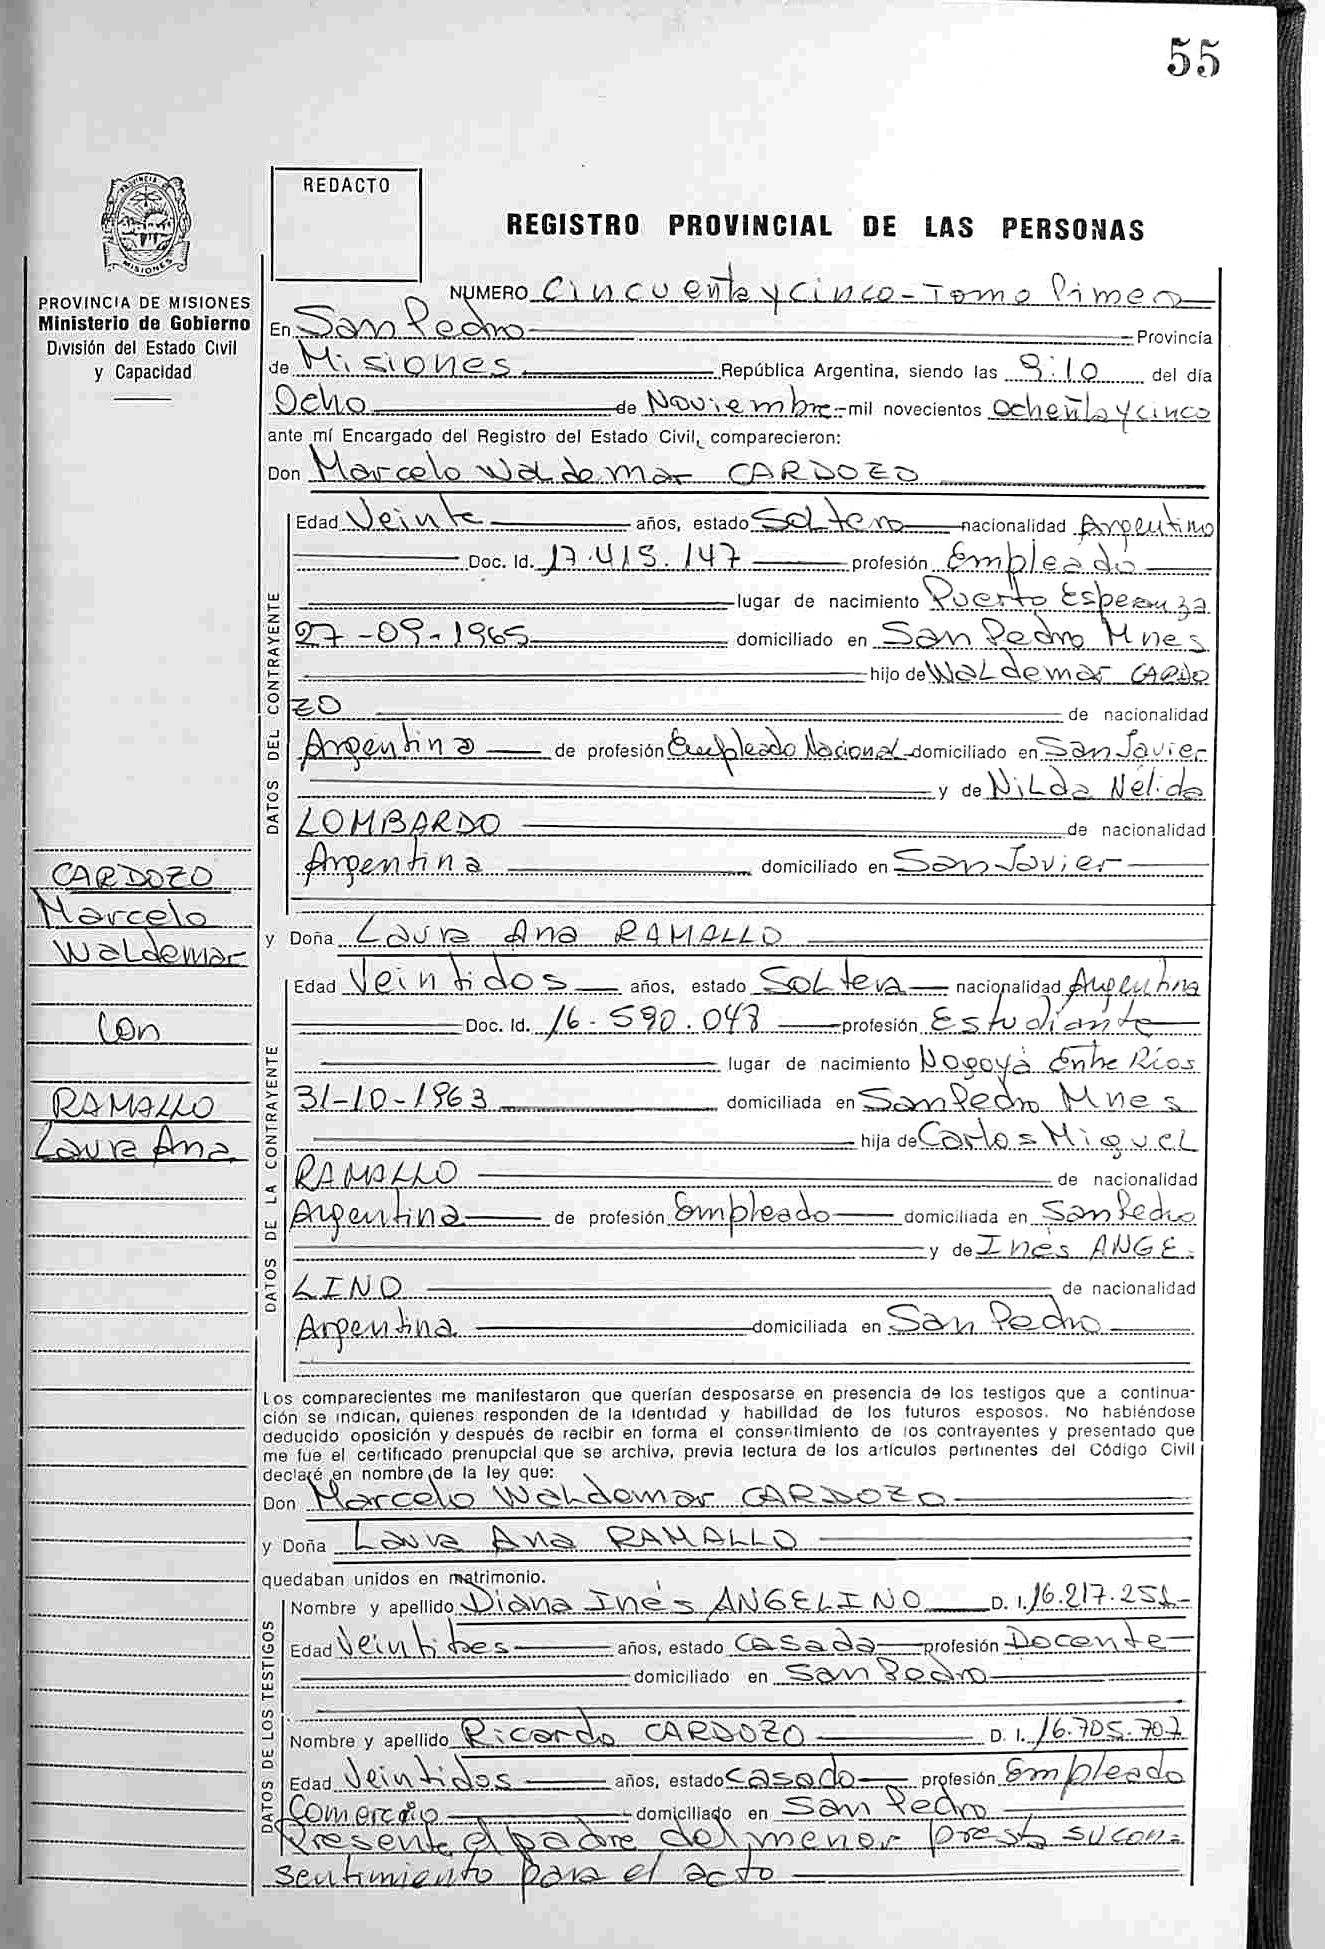 55
PROVINCIA DE MISIONES
REDACTO
REGISTRO PROVINCIAL DE LAS PERSONAS
PROVINCIA DE MISIONES
Ministerio de Gobierno
División del Estado Civil
y Capacidad
NUMERO Cincuenta y cinco - Tomo Primero
En San Pedro Provincia
de Misiones República Argentina, siendo las 9:10 del día
Ocho de Noviembre mil novecientos ochenta y cinco
ante mí Encargado del Registro del Estado Civil, comparecieron:
Don Marcelo Waldemar CARDOZO
DATOS DEL CONTRAYENTE
Edad Veinte años, estado Soltero nacionalidad Argentino
Doc. Id. 17.415.147 profesión Empleado
lugar de nacimiento Puerto Esperanza
27-09-1965 domiciliado en San Pedro Mnes
hijo de Waldemar CARDO
ZO de nacionalidad
Argentina de profesión Empleado Nacional domiciliado en San Javier
y de Nilda Nélida
LOMBARDO de nacionalidad
Argentina domiciliado en San Javier
CARDOZO
Marcelo
Waldemar
Con
RAMALLO
Laura Ana
y Doña Laura Ana RAMALLO
DATOS DE LA CONTRAYENTE
Edad Veintidos años, estado Soltera nacionalidad Argentina
Doc. Id. 16.590.048 profesión Estudiante
lugar de nacimiento Nogoyá Entre Ríos
31-10-1963 domiciliada en San Pedro Mnes
hija de Carlos Miguel
RAMALLO de nacionalidad
Argentina de profesión Empleado domiciliada en San Pedro
y de Inés ANGE-
LINO de nacionalidad
Argentina domiciliada en San Pedro
Los comparecientes me manifestaron que querían desposarse en presencia de los testigos que a continua-
ción se indican, quienes responden de la identidad y habilidad de los futuros esposos. No habiéndose
deducido oposición y después de recibir en forma el consentimiento de los contrayentes y presentado que
me fue el certificado prenupcial que se archiva, previa lectura de los artículos pertinentes del Código Civil
declaré en nombre de la ley que:
Don Marcelo Waldemar CARDOZO
y Doña Laura Ana RAMALLO
quedaban unidos en matrimonio.
DATOS DE LOS TESTIGOS
Nombre y apellido Diana Inés ANGELINO D. I. 16.217.251
Edad Veintitres años, estado Casada profesión Docente
domiciliado en San Pedro
Nombre y apellido Ricardo CARDOZO D. I. 16.705.707
Edad Veintidos años, estado casado profesión Empleado
Comercio domiciliado en San Pedro
Presente el padre del menor presta su con-
sentimiento para el acto